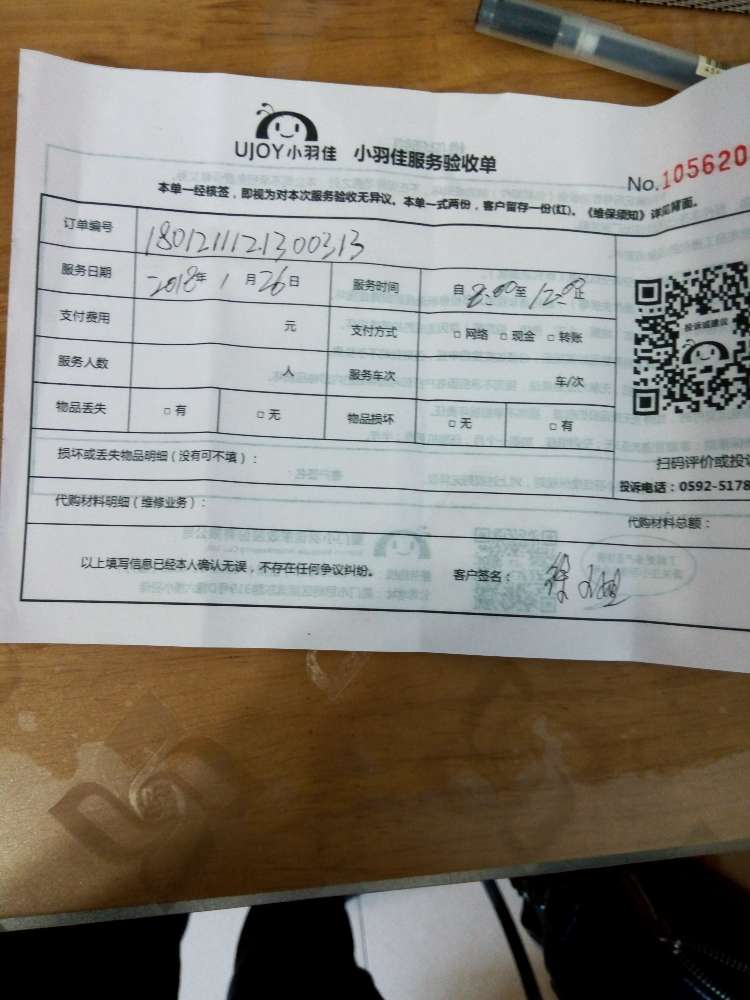 UJOY小羽佳 小羽佳服务验收单
No.105620
本单一经核签，即视为对本次服务验收无异议。本单一式两份，客户留存一份(红)。《维保须知》详见背面。
订单编号 1801211121300313
服务日期 2018年1月26日 服务时间 自8:00至12:00止
支付费用 元 支付方式 □网络 □现金 □转账
服务人数 人 服务车次 车/次
物品丢失 □有 □无 物品损坏 □无 □有
投诉或建议
扫码评价或投诉
投诉电话：0592-5178
损坏或丢失物品明细（没有可不填）：
代购材料明细（维修业务）： 代购材料总额：
以上填写信息已经本人确认无误，不存在任何争议纠纷。 客户签名：